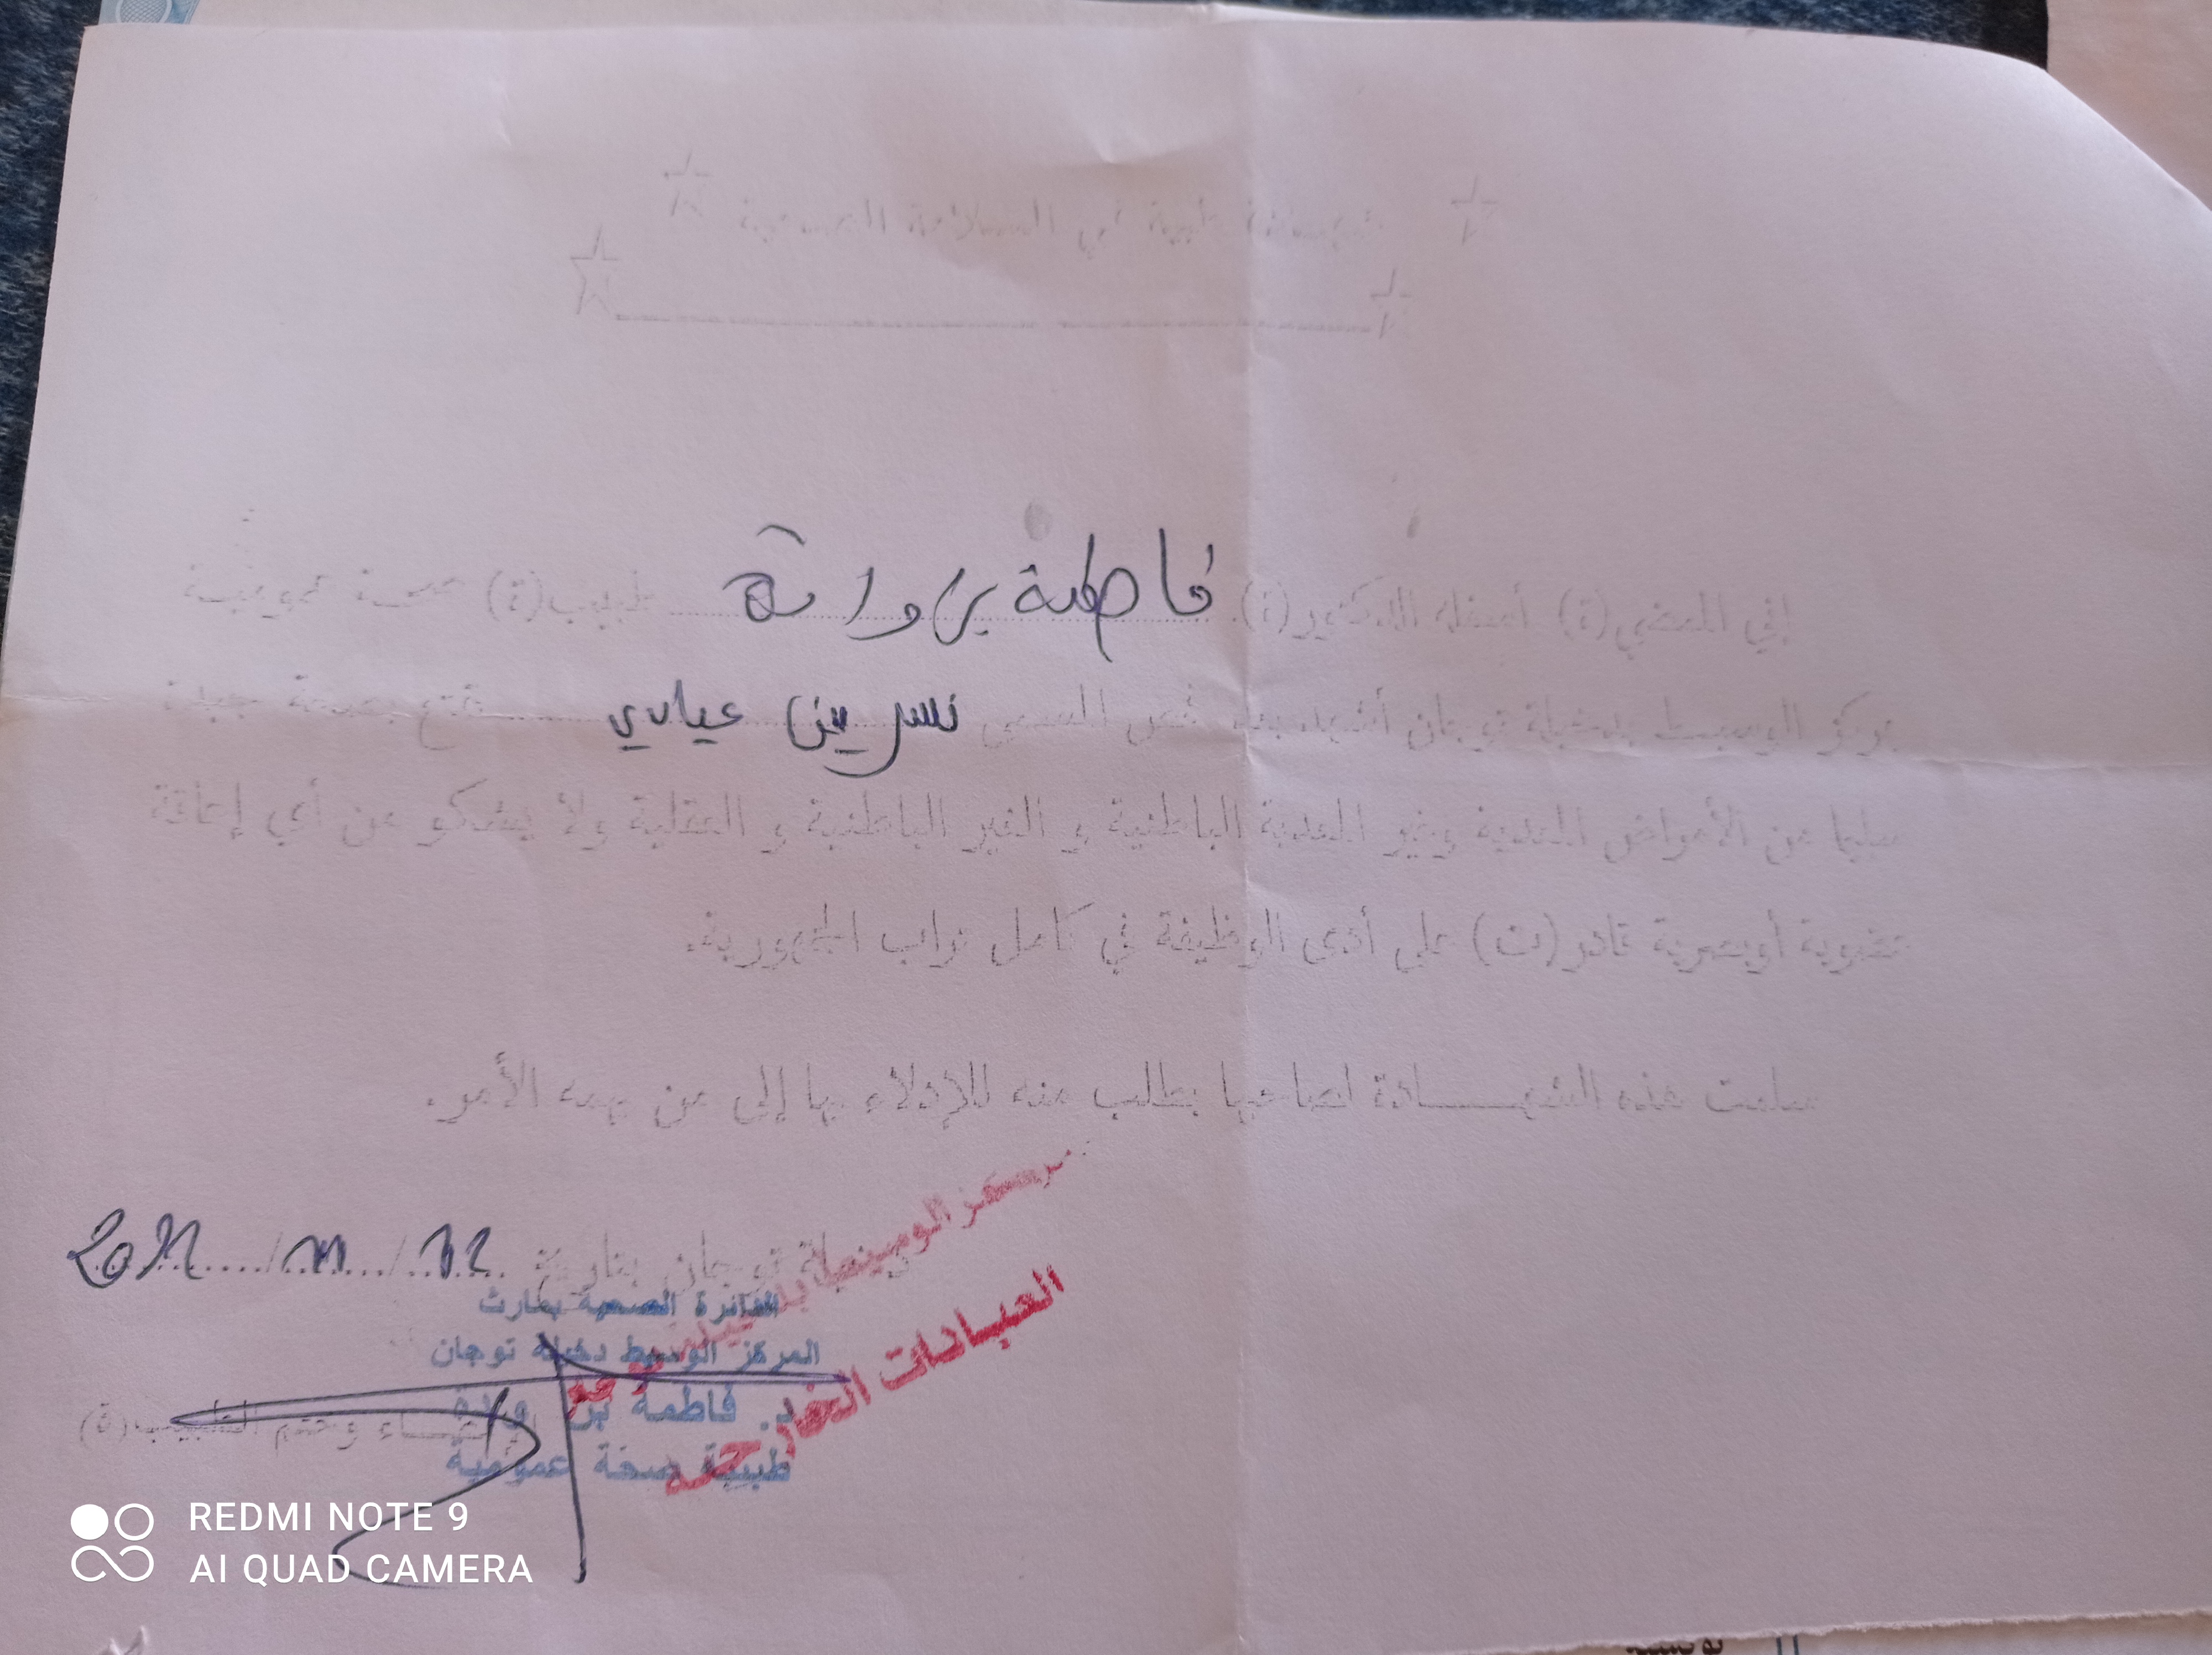 شهادة طبية في السلامة الصحية
إني الممضي(ة) أسفله الدكتور(ة) فاطمة بن وادة طبيب(ة) صحة عمومية
بمركز الوسيط بدخيلة توجان أشهد بعد فحص المسمى نسرين عيادي يتمتع بصحة جيدة
سليما من الأمراض المعدية وغير المعدية الباطنية و الغير الباطنية و العقلية ولا يشكو من أي إعاقة
عضوية أوبصرية قادر(ت) على أدى الوظيفة في كامل تراب الجمهورية.
سلمت هذه الشهـــــادة لصاحبها بطلب منه للإدلاء بها إلى من يهمه الأمر.
توجان بتاريخ
مركز الوسيط
العيادات الخارجية
الدائرة الصحية بمارث
المركز الوسيط دخيلة توجان
د. فاطمة بن
طبيبة صحة عمومية
إمضــاء وختم الطبيب(ة)
REDMI NOTE 9
AI QUAD CAMERA